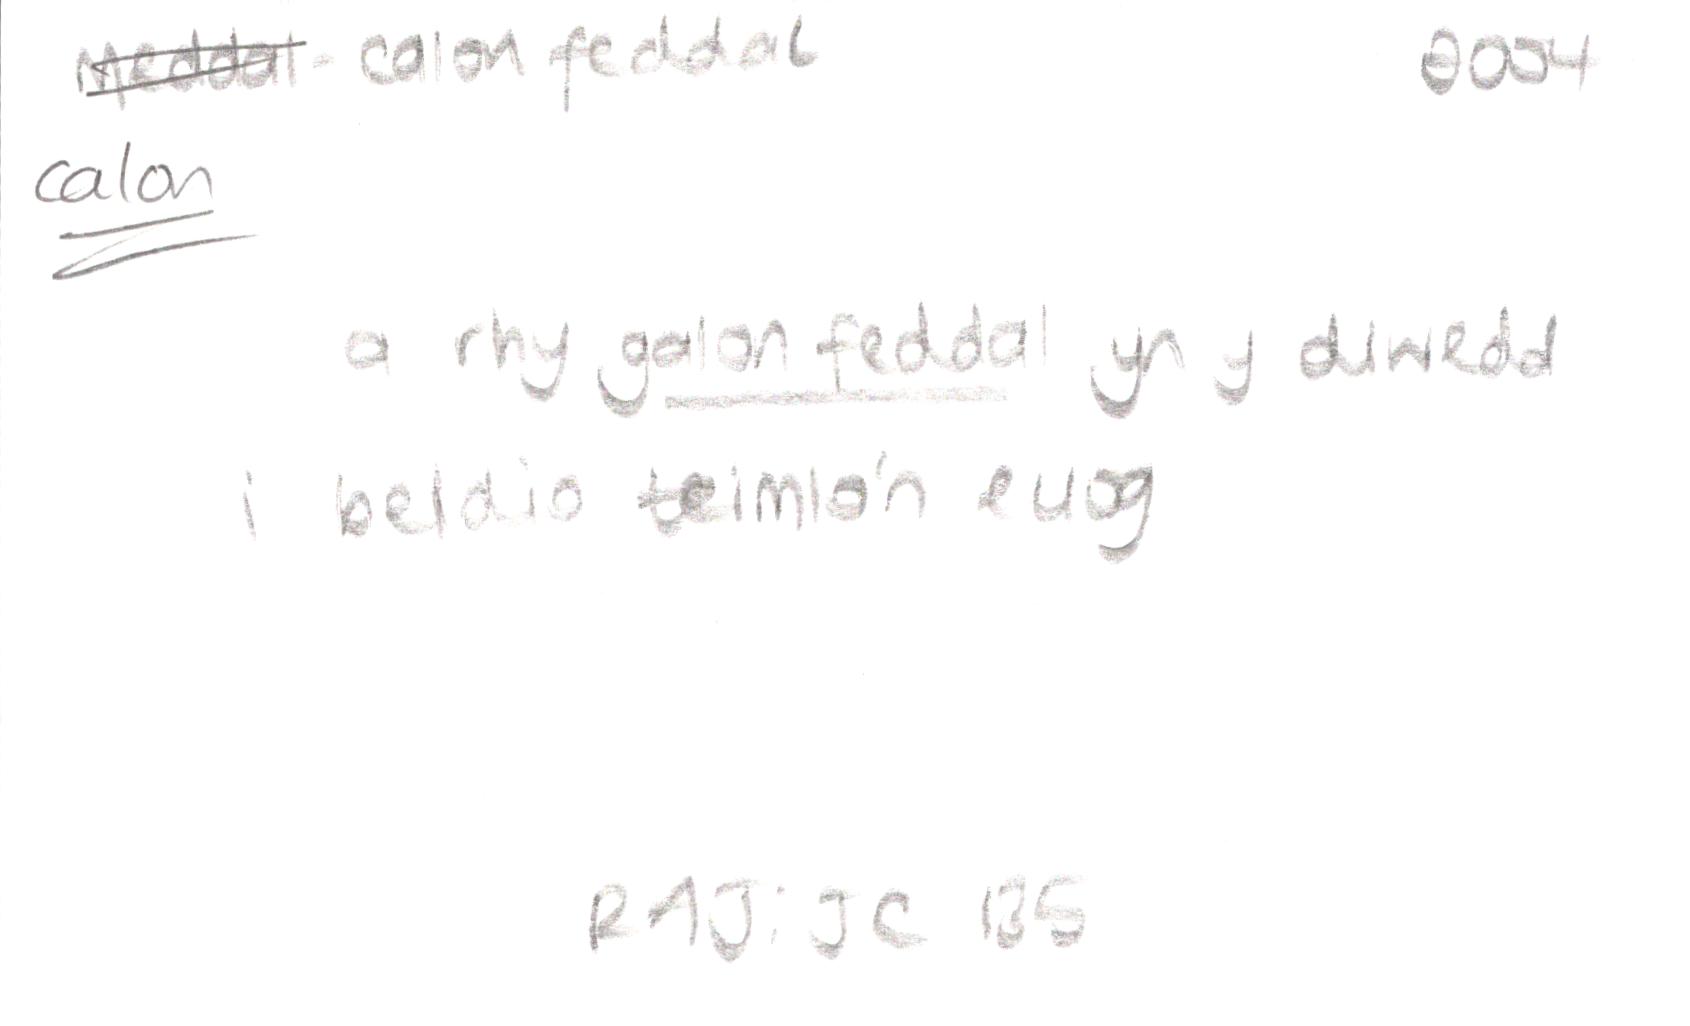 Meddal - calon feddal 2004
calon
a rhy galon feddal yn y diwedd
i beidio teimlo'n euog
RAJ: JC 135